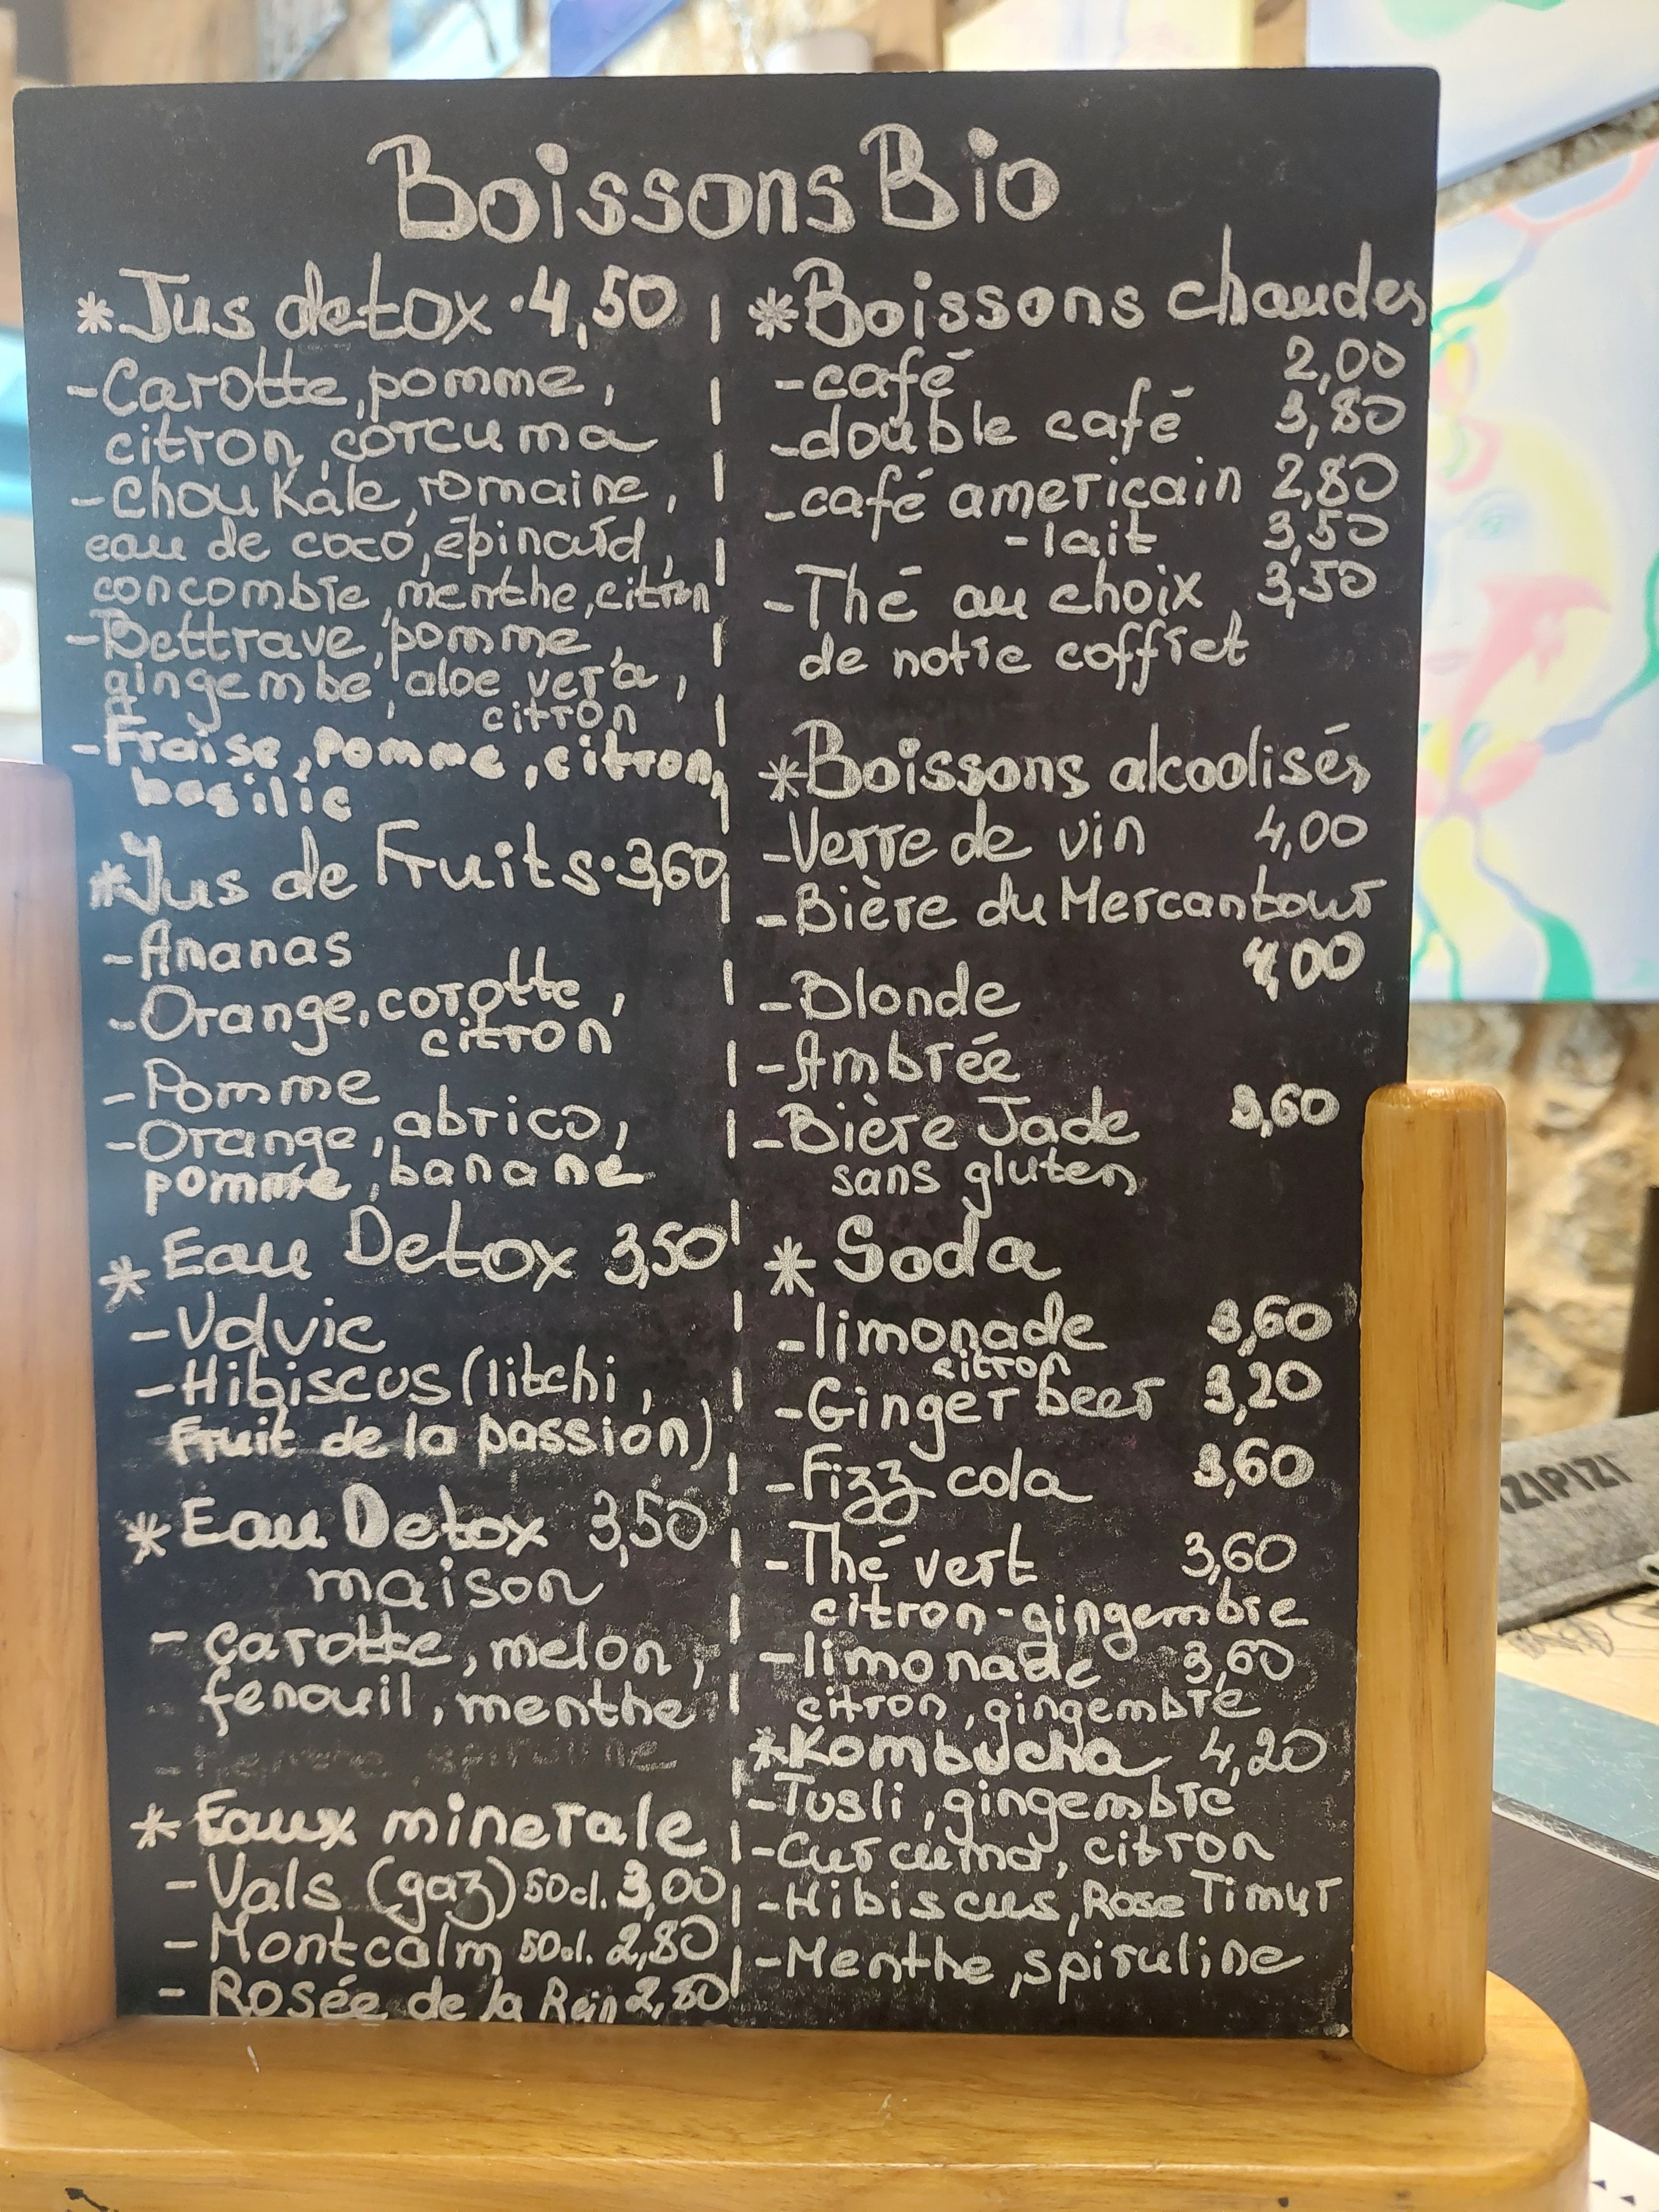 Boissons Bio
*Jus detox • 4,50
-Carotte, pomme,
citron, corcuma
-chou Kale, romaine,
eau de coco, épinard,
concombre, menthe, citron
-Bettrave, pomme,
gingembe, aloe vera,
citron
-Fraise, pomme, citron,
basilic
*Jus de Fruits • 3,60
-Ananas
-Orange, corotte,
citron
-Pomme
-Orange, abrico,
pomme, banane
* Eau Detox 3,50
-Volvic
-Hibiscus (litchi,
Fruit de la passion)
* Eau Detox 3,50
maison
- carotte, melon,
fenouil, menthe
- spiruline
* Eaux minerale
- Vals (gaz) 50cl. 3,00
- Montcalm 50cl. 2,80
- Rosée de la Rein 2,80
*Boissons chaudes
-café 2,00
-double café 3,80
-café americain 2,80
-lait 3,50
-Thé au choix 3,50
de notre coffret
*Boissons alcoolisés
-Verre de vin 4,00
-Bière du Mercantour
4,00
-Blonde
-Ambrée
-Bière Jade 3,60
sans gluten
* Soda
-limonade 3,60
citron
-Ginger beer 3,20
-Fizz cola 3,60
-Thé vert 3,60
citron-gingembre
-limonade 3,60
citron, gingembre
*Kombucha 4,20
-Tusli, gingembre
-Curcuma, citron
-Hibiscus, Rose Timur
-Menthe, spiruline
IZIPIZI